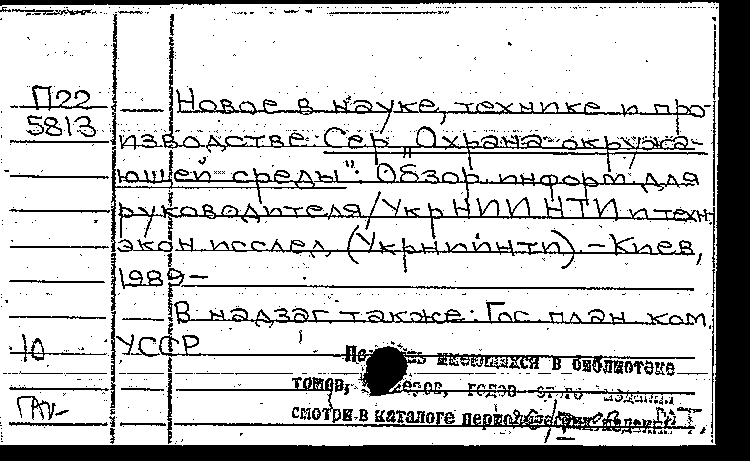 П22
5813
Новое в науке, технике и про-
изводстве. Сер. „Охрана окружа-
ющей среды": Обзор. информ. для
руководителя/УкрНИИНТИ и техн.-
экон. исслед. (Укрнииnти). – Киев,
1989–
В надзаг. также: Гос. план. ком.
10 УССР
имеющихся в библиотеке
томов, номеров, годов этого издания
смотри в каталоге периодических изданий